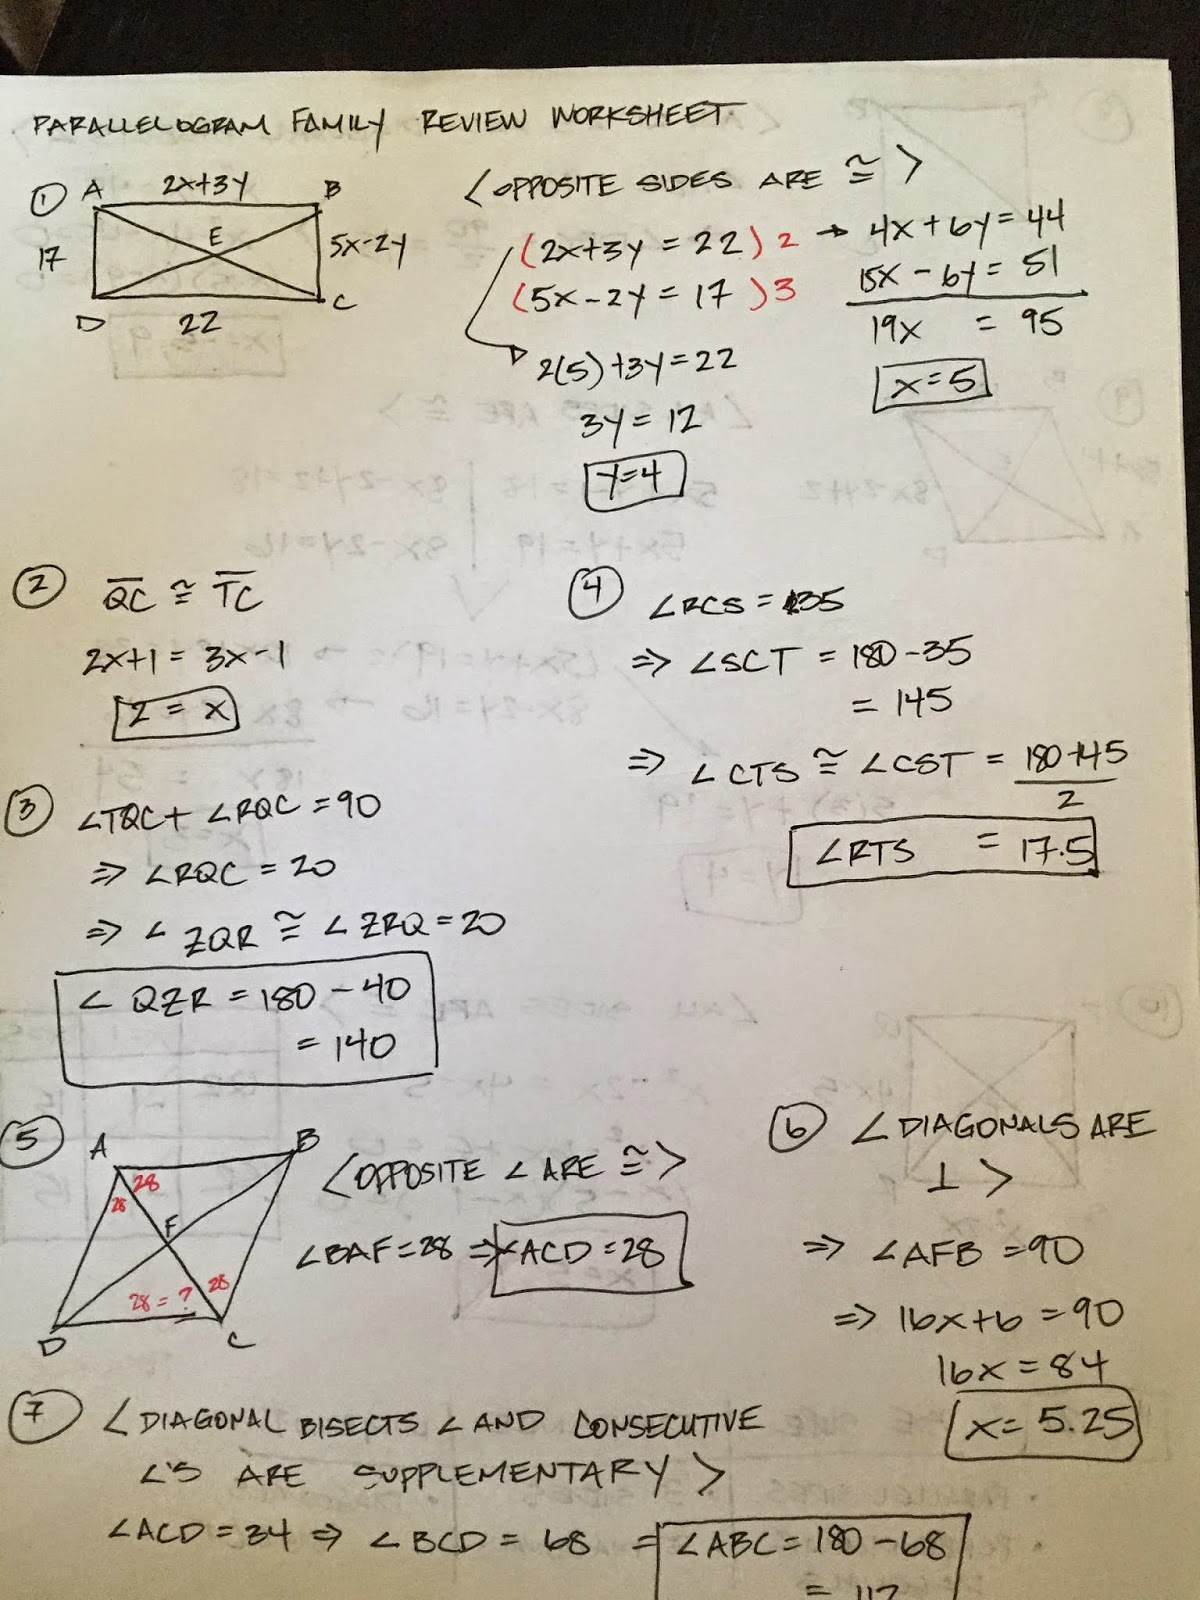 PARALLELOGRAM FAMILY REVIEW WORKSHEET
① A 2x+3y B
17 E 5x-2y
D 22 C
<OPPOSITE SIDES ARE ≅>
(2x+3y = 22)2 → 4x+6y=44
(5x-2y = 17)3 15x-6y=51
19x = 95
x=5
2(5)+3y=22
3y=12
y=4
② QC ≅ TC
2x+1 = 3x-1
2 = x
③ ∠TQC+ ∠RQC=90
⇒ ∠RQC = 20
⇒ ∠ZQR ≅ ∠ZRQ=20
∠QZR = 180-40
= 140
④ ∠RCS = 35
⇒ ∠SCT = 180-35
= 145
⇒ ∠CTS ≅ ∠CST = 180-145
2
∠RTS = 17.5
⑤ A B
28
28
F
28
28=?
D C
<OPPOSITE ∠ ARE ≅>
∠BAF=28 ⇒ ∠ACD=28
⑥ <DIAGONALS ARE
⊥>
⇒ ∠AFB = 90
⇒ 16x+6 = 90
16x = 84
x= 5.25
⑦ <DIAGONAL BISECTS ∠ AND CONSECUTIVE
∠'S ARE SUPPLEMENTARY>
∠ACD = 34 ⇒ ∠BCD = 68 ⇒ ∠ABC = 180-68
= 112